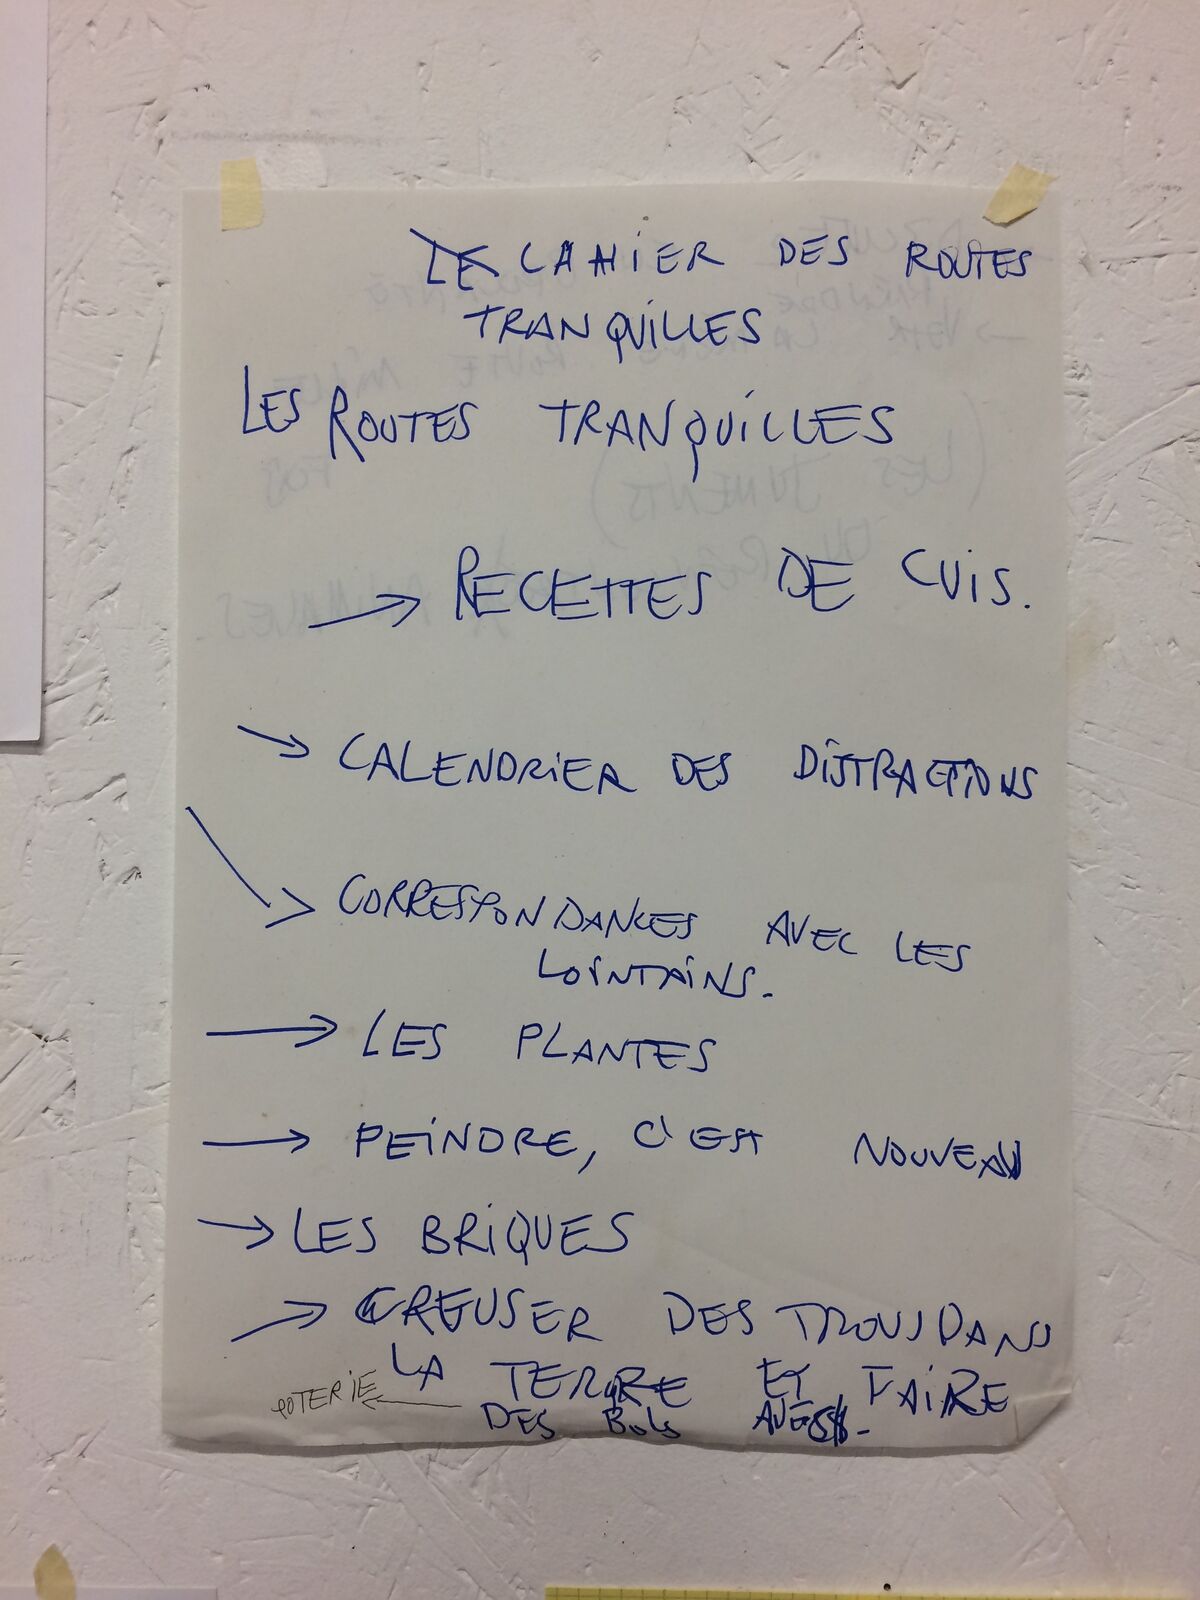 LE CAHIER DES ROUTES
TRANQUILLES
LES ROUTES TRANQUILLES
→ RECETTES DE CUIS.
→ CALENDRIER DES DISTRACTIONS
→ CORRESPONDANCES AVEC LES
LOINTAINS.
→ LES PLANTES
→ PEINDRE, C'EST NOUVEAU
→ LES BRIQUES
→ CREUSER DES TROUS DANS
LA TERRE ET FAIRE
POTERIE ←
DES BOLS AVEC.